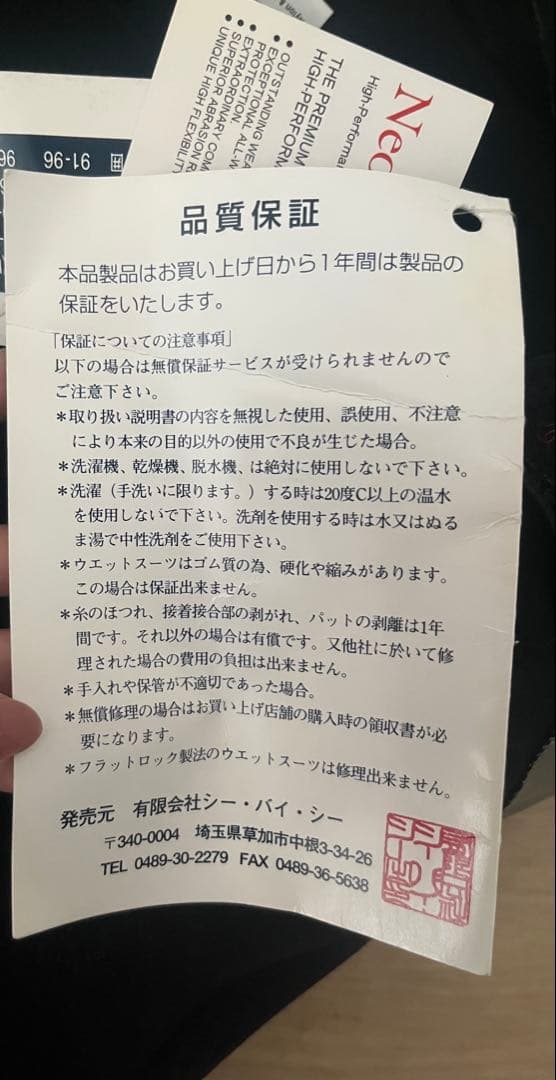 Neo
High-Performa
THE PREMIUM
HIGH-PERFORM
• OUTSTANDING WEA
• EXCEPTIONAL ALL-W
PROTECTION
• EXTRAORDINARY COM
• SUPERIOR ABRASION R
• UNIQUE HIGH FLEXIBILIT
囲 91-96
96
品質保証
本品製品はお買い上げ日から1年間は製品の
保証をいたします。
「保証についての注意事項」
以下の場合は無償保証サービスが受けられませんので
ご注意下さい。
*取り扱い説明書の内容を無視した使用、誤使用、不注意
により本来の目的以外の使用で不良が生じた場合。
*洗濯機、乾燥機、脱水機、は絶対に使用しないで下さい。
*洗濯（手洗いに限ります。）する時は20度C以上の温水
を使用しないで下さい。洗剤を使用する時は水又はぬる
ま湯で中性洗剤をご使用下さい。
*ウエットスーツはゴム質の為、硬化や縮みがあります。
この場合は保証出来ません。
*糸のほつれ、接着接合部の剥がれ、パットの剥離は1年
間です。それ以外の場合は有償です。又他社に於いて修
理された場合の費用の負担は出来ません。
*手入れや保管が不適切であった場合。
*無償修理の場合はお買い上げ店舗の購入時の領収書が必
要になります。
*フラットロック製法のウエットスーツは修理出来ません。
発売元 有限会社シー・バイ・シー
〒340-0004 埼玉県草加市中根3-34-26
TEL 0489-30-2279 FAX 0489-36-5638